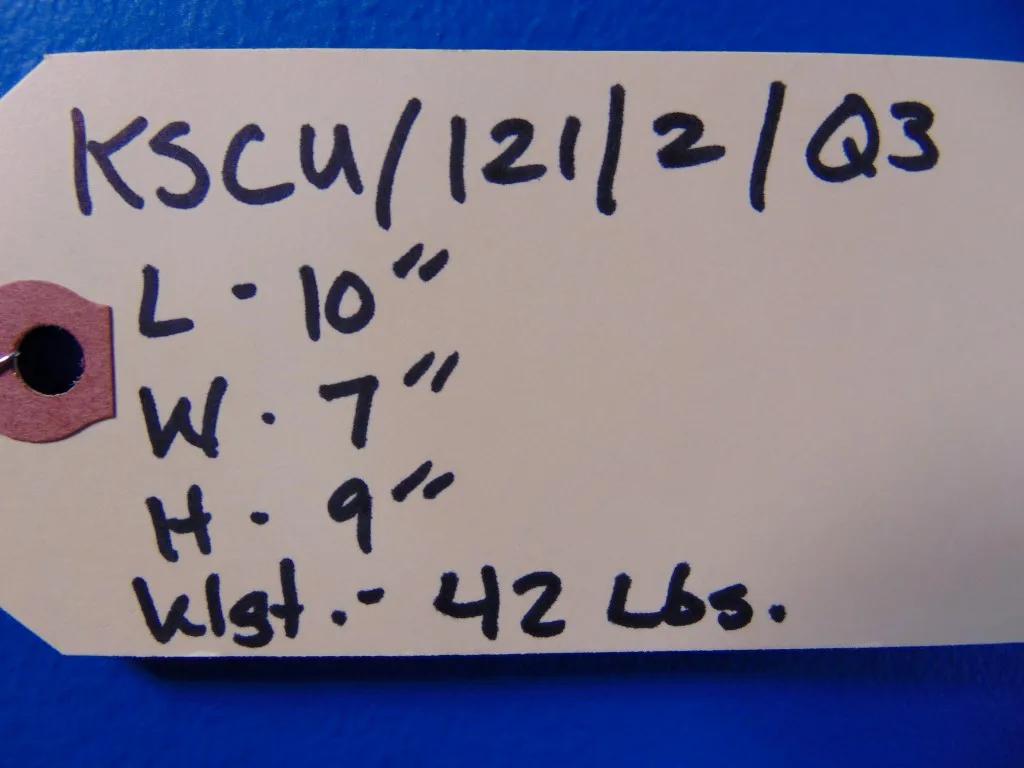 KSCU/121/2/Q3
L - 10"
W - 7"
H - 9"
Wgt. - 42 Lbs.